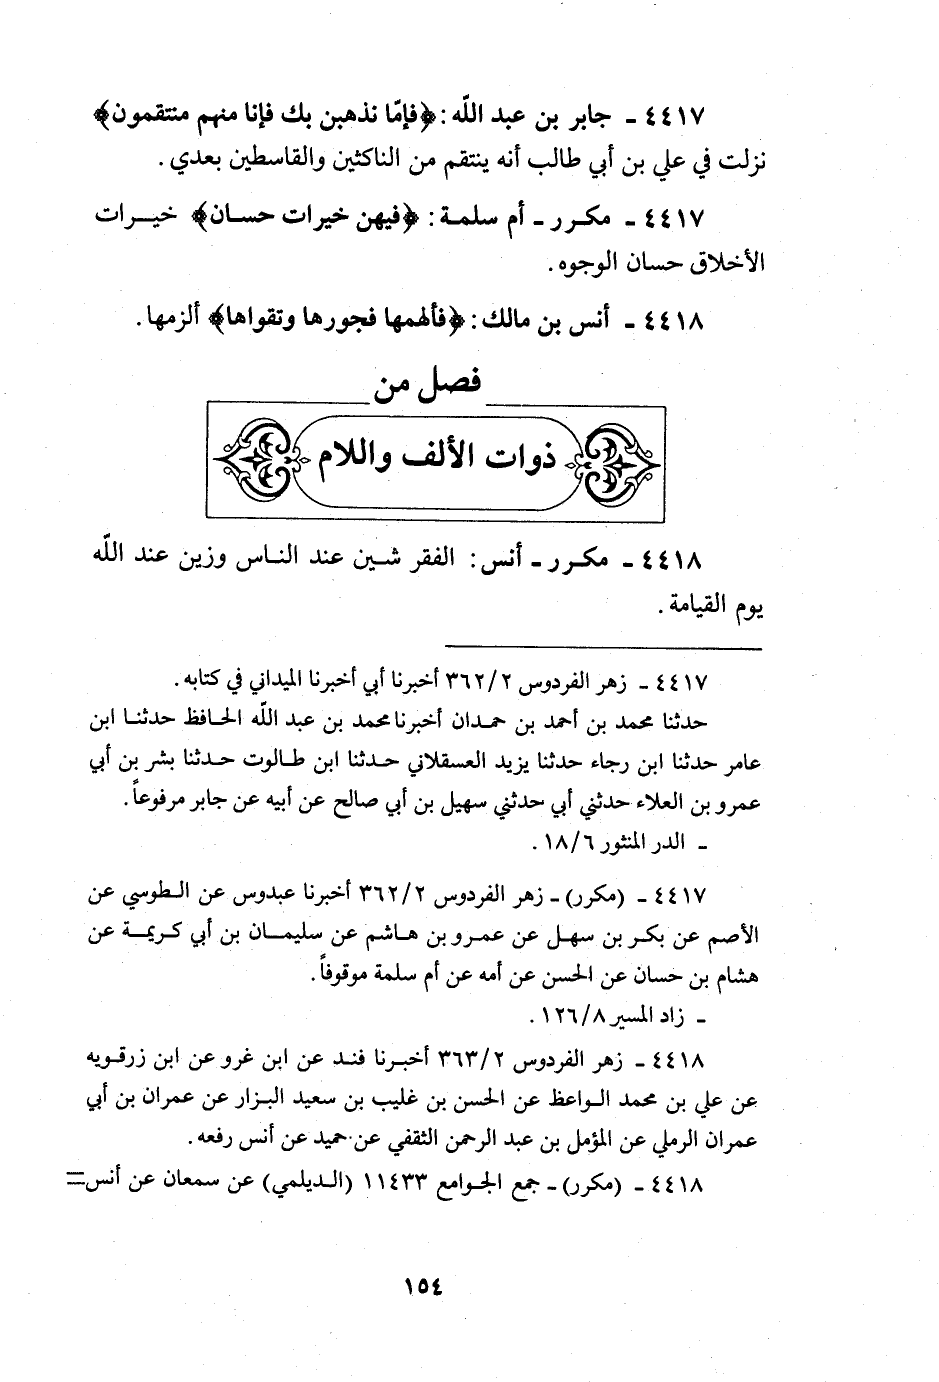 ٤٤١٧ ـ جابر بن عبد اللّه : ﴿فإمّا نذهبن بك فإنا منهم منتقمون﴾
نزلت في علي بن أبي طالب أنه ينتقم من الناكثين والقاسطين بعدي .
٤٤١٧ ـ مكرر ـ أم سلمة : ﴿فيهن خيرات حسان﴾ خيرات
الأخلاق حسان الوجوه .
٤٤١٨ ـ أنس بن مالك : ﴿فألهمها فجورها وتقواها﴾ ألزمها .
فصل من
ذوات الألف واللام
٤٤١٨ ـ مكرر ـ أنس : الفقر شين عند الناس وزين عند اللّه
يوم القيامة .
٤٤١٧ ـ زهر الفردوس ٣٦٢/٢ أخبرنا أبي أخبرنا الميداني في كتابه .
حدثنا محمد بن أحمد بن حمدان أخبرنا محمد بن عبد اللّه الحافظ حدثنا ابن
عامر حدثنا ابن رجاء حدثنا يزيد العسقلاني حدثنا ابن طالوت حدثنا بشر بن أبي
عمرو بن العلاء حدثني أبي حدثني سهيل بن أبي صالح عن أبيه عن جابر مرفوعاً .
ـ الدر المنثور ١٨/٦ .
٤٤١٧ ـ (مكرر) ـ زهر الفردوس ٣٦٢/٢ أخبرنا عبدوس عن الطوسي عن
الأصم عن بكر بن سهل عن عمرو بن هاشم عن سليمان بن أبي كريمة عن
هشام بن حسان عن الحسن عن أمه عن أم سلمة موقوفاً .
ـ زاد المسير ١٢٦/٨ .
٤٤١٨ ـ زهر الفردوس ٣٦٣/٢ أخبرنا فند عن ابن غرو عن ابن زرقويه
عن علي بن محمد الواعظ عن الحسن بن غليب بن سعيد البزار عن عمران بن أبي
عمران الرملي عن المؤمل بن عبد الرحمن الثقفي عن حميد عن أنس رفعه .
٤٤١٨ ـ (مكرر) ـ جمع الجوامع ١١٤٣٣ (الديلمي) عن سمعان عن أنس =
١٥٤